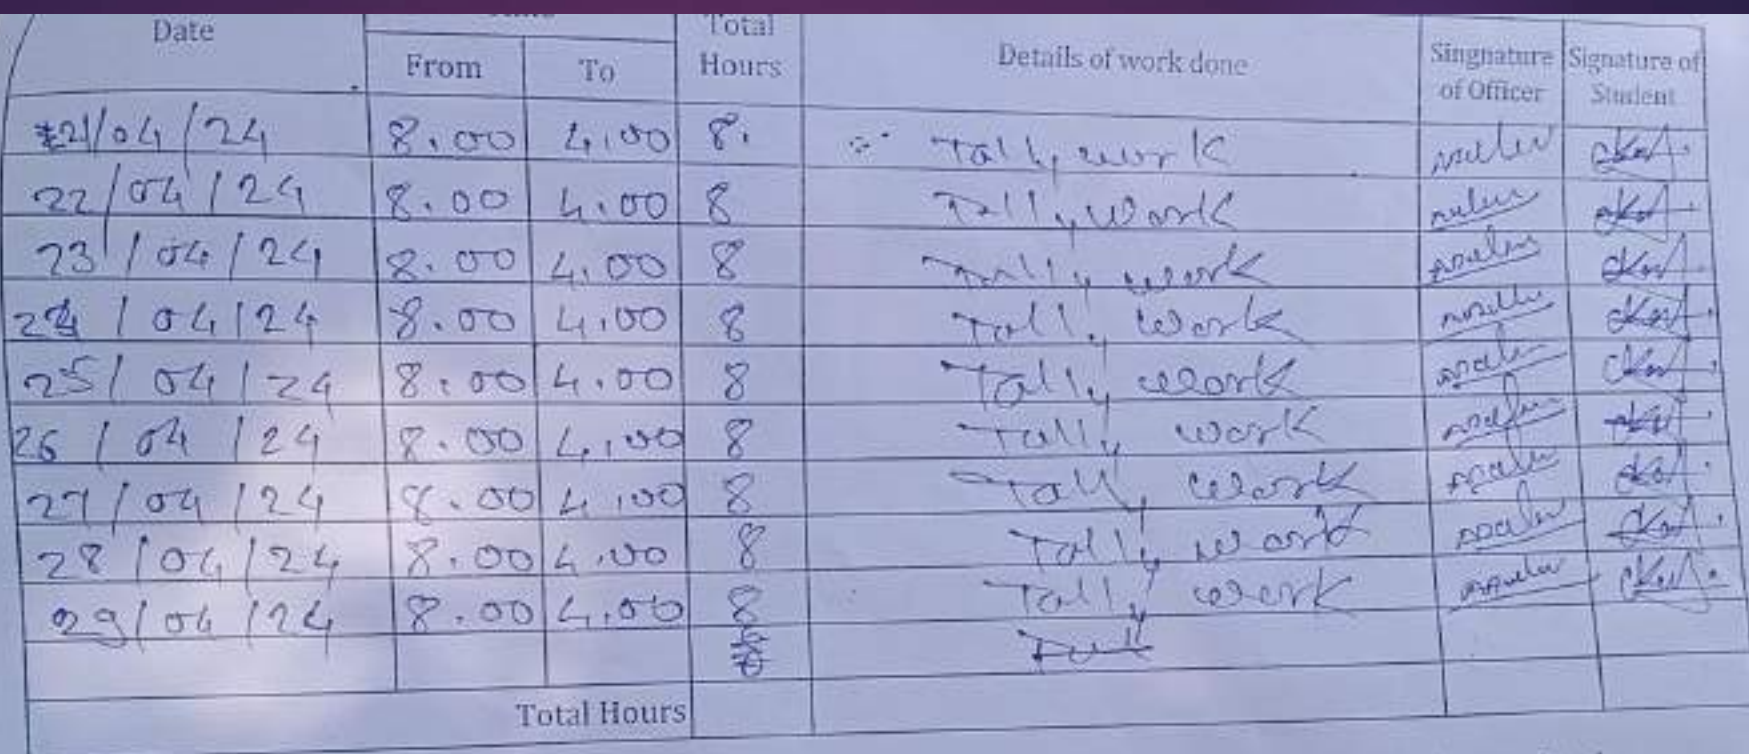 Date Total
From To Hours Details of work done Singnature Signature of
of Officer Student
21/04/24 8.00 4.00 8. Tally work
22/04/24 8.00 4.00 8 Tally Work
23/04/24 8.00 4.00 8 Tally work
24/04/24 8.00 4.00 8 Tally work
25/04/24 8.00 4.00 8 Tally work
26/04/24 8.00 4.00 8 Tally work
27/04/24 8.00 4.00 8 Tally work
28/04/24 8.00 4.00 8 Tally work
29/04/24 8.00 4.00 8 Tally work
Total Hours